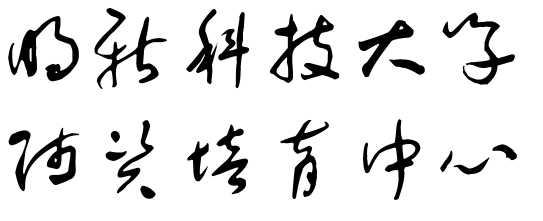 明新科技大学
师资培育中心